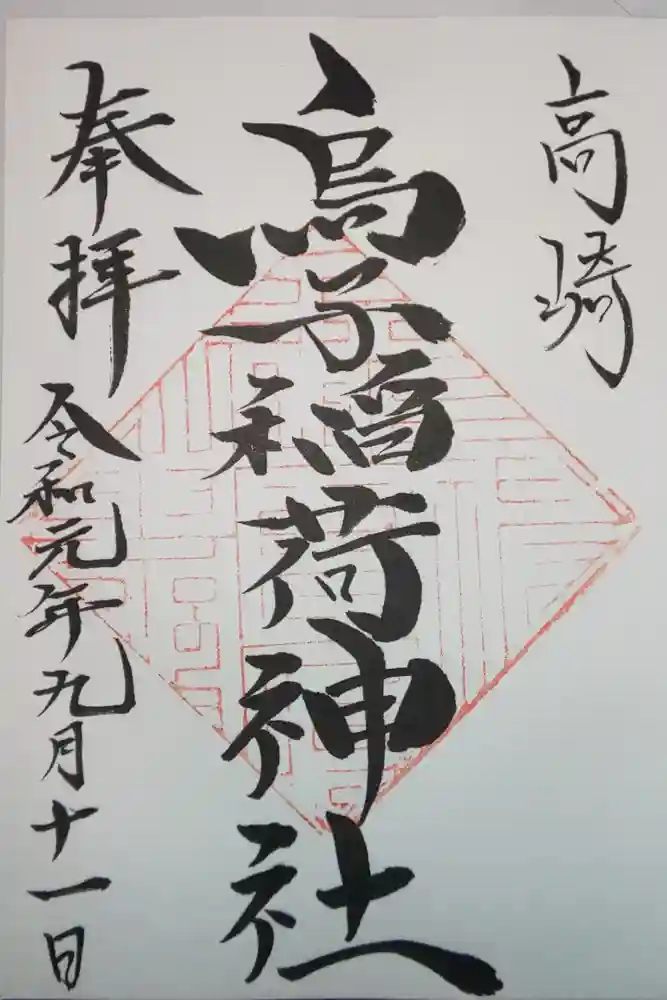 高崎
烏子稲荷神社
奉拝
令和元年九月十一日